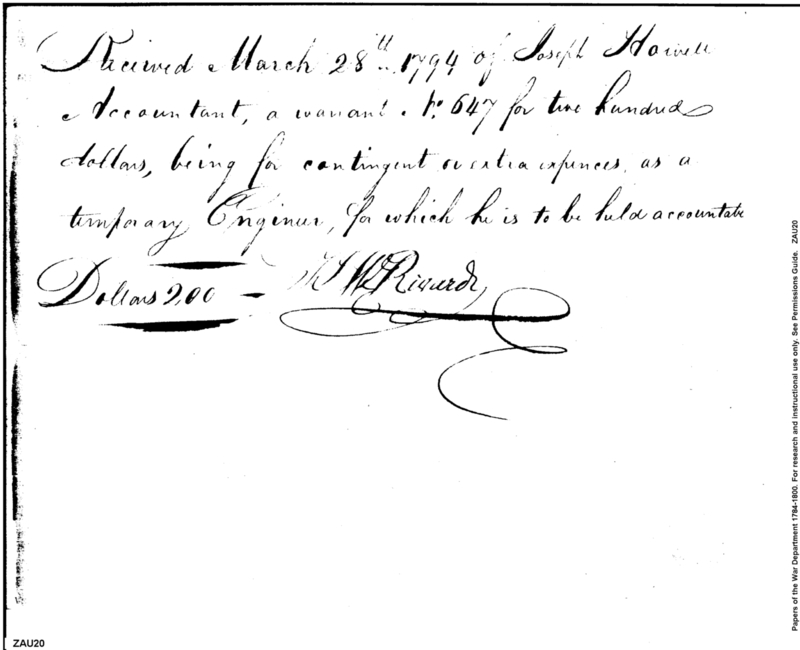 Received March 28th 1794 of Joseph Howell
Accountant, a warrant No. 647 for two hundred
dollars, being for contingent or extra expences, as a
temporary Engineer, for which he is to be held accountable
Dollars 200 —
Papers of the War Department 1784-1800. For research and instructional use only. See Permissions Guide. ZAU20
ZAU20